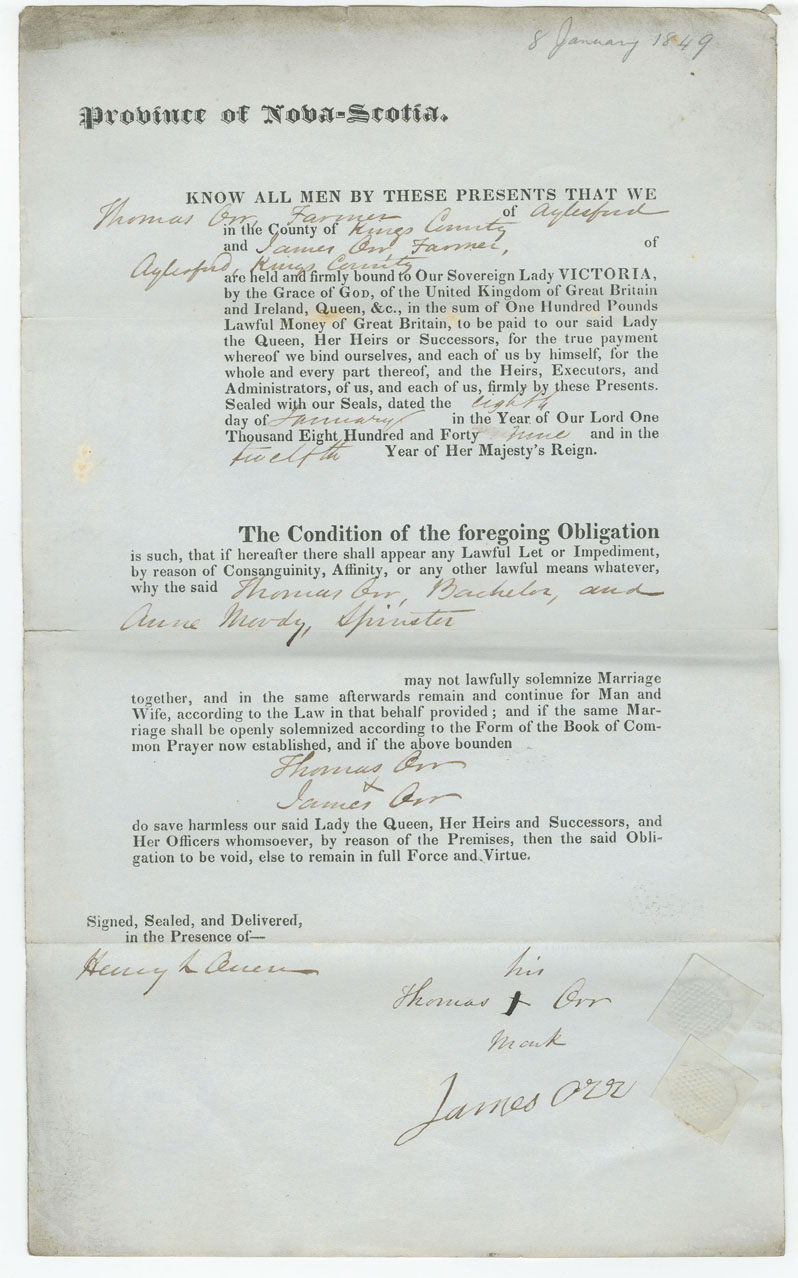 8 January 1849
Province of Nova-Scotia.
KNOW ALL MEN BY THESE PRESENTS THAT WE
Thomas Orr, Farmer of Aylesford
in the County of Kings County
and James Orr Farmer, of
Aylesford, Kings County
are held and firmly bound to Our Sovereign Lady VICTORIA,
by the Grace of GOD, of the United Kingdom of Great Britain
and Ireland, Queen, &c., in the sum of One Hundred Pounds
Lawful Money of Great Britain, to be paid to our said Lady
the Queen, Her Heirs or Successors, for the true payment
whereof we bind ourselves, and each of us by himself, for the
whole and every part thereof, and the Heirs, Executors, and
Administrators, of us, and each of us, firmly by these Presents.
Sealed with our Seals, dated the eighth
day of January in the Year of Our Lord One
Thousand Eight Hundred and Forty nine and in the
twelfth Year of Her Majesty's Reign.
The Condition of the foregoing Obligation
is such, that if hereafter there shall appear any Lawful Let or Impediment,
by reason of Consanguinity, Affinity, or any other lawful means whatever,
why the said Thomas Orr, Bachelor, and
Anne Moody, Spinster
may not lawfully solemnize Marriage
together, and in the same afterwards remain and continue for Man and
Wife, according to the Law in that behalf provided; and if the same Mar-
riage shall be openly solemnized according to the Form of the Book of Com-
mon Prayer now established, and if the above bounden
Thomas Orr
+
James Orr
do save harmless our said Lady the Queen, Her Heirs and Successors, and
Her Officers whomsoever, by reason of the Premises, then the said Obli-
gation to be void, else to remain in full Force and Virtue.
Signed, Sealed, and Delivered,
in the Presence of—
Henry L Owen
his
Thomas + Orr
mark
James Orr